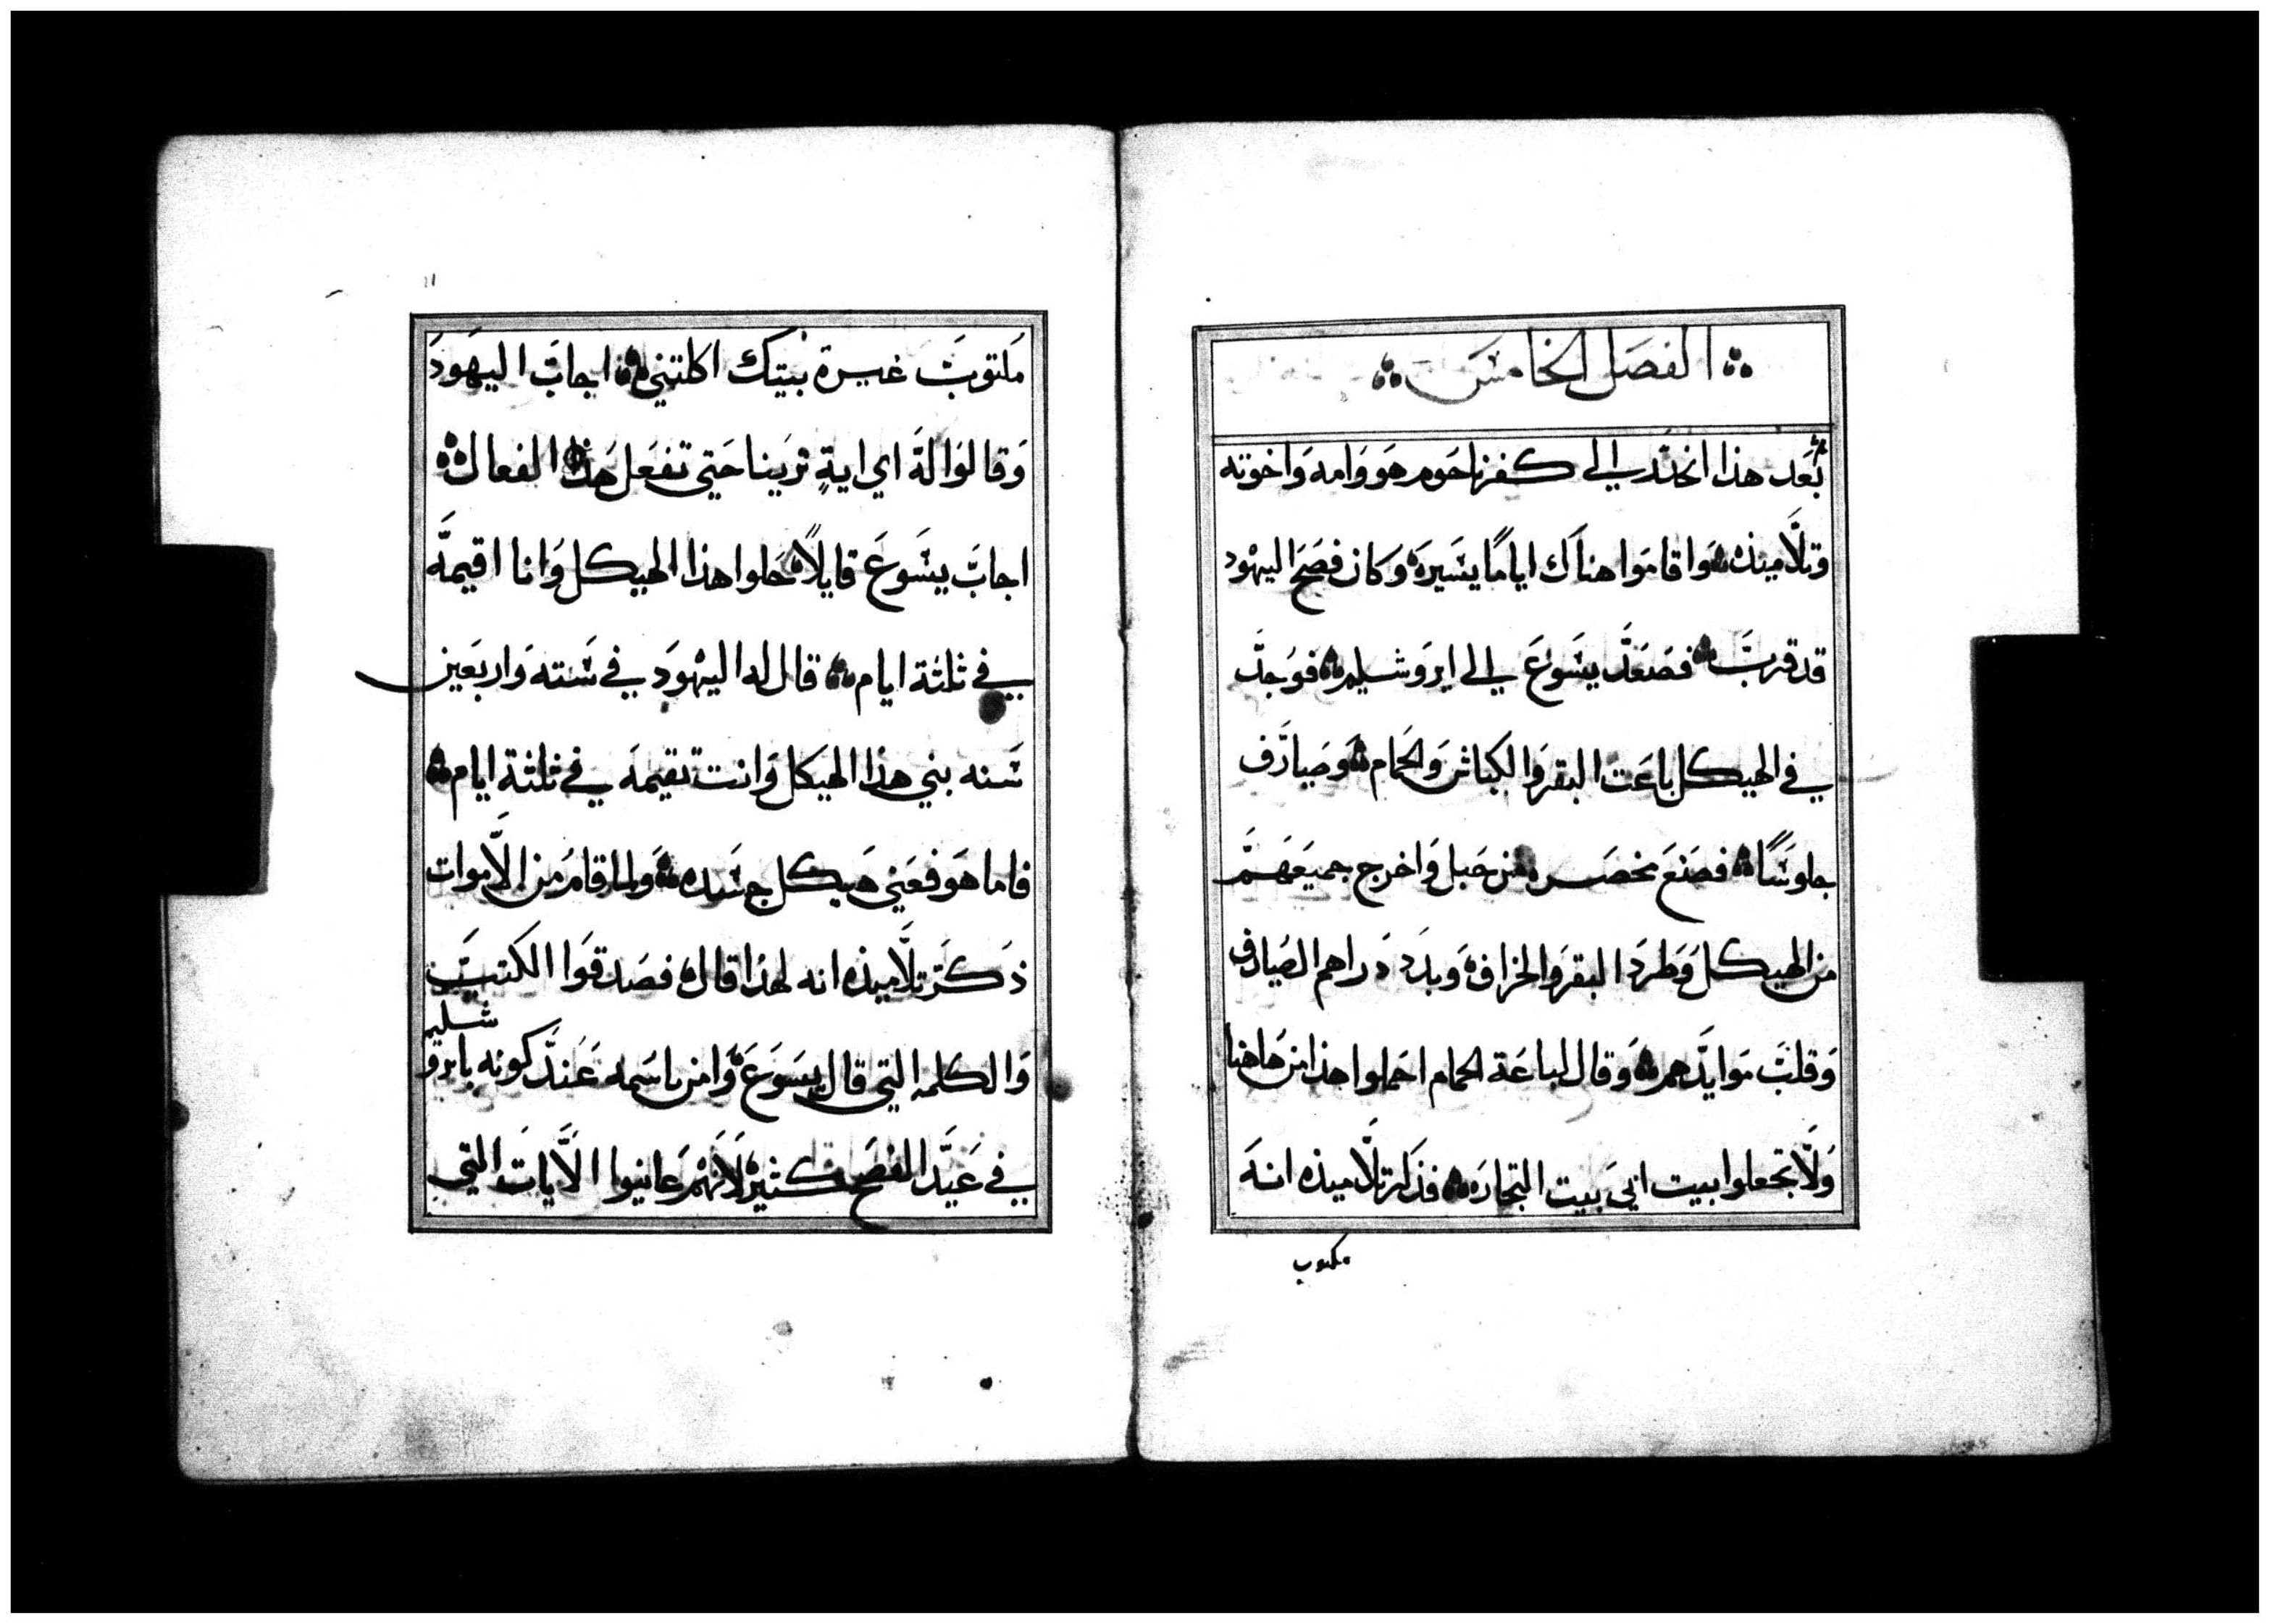 الفصل الخامس
بعد هذا انحدر الى كفرناحوم هو وامه واخوته
وتلاميذه واقاموا هناك اياما يسيره وكان فصح اليهود
قد قرب فصعد يسوع الى ايروشليم فوجد
في الهيكل باعت البقر والكباش والحمام وصيارف
جلوسًا فصنع مخصره من حبل واخرج جميعهم
من الهيكل وطرد البقر والخراف وبدد دراهم الصيارف
وقلب موايدهم وقال لباعة الحمام احملوا هذا من هاهنا
ولا تجعلوا بيت ابي بيت التجاره فذكر تلاميذه انه
مكتوب
١١
مكتوب غيرة بيتك اكلتني اجاب اليهود
وقالوا له اي اية ترينا حتي تفعل هذا الفعال
اجاب يسوع قايلًا حلوا هذا الهيكل وانا اقيمه
في ثلثة ايام قال له اليهود في سته واربعين
سنه بني هذا الهيكل وانت تقيمه في ثلثة ايام
فاما هو فعني هيكل جسده ولما قام من الاموات
ذكر تلاميذه انه لهذا قال فصدقوا الكتب
والكلمه التي قال يسوع وامن باسمه عند كونه بايرو
شليم
في عيد الفصح كثيره لانهم عاينوا الايات التي